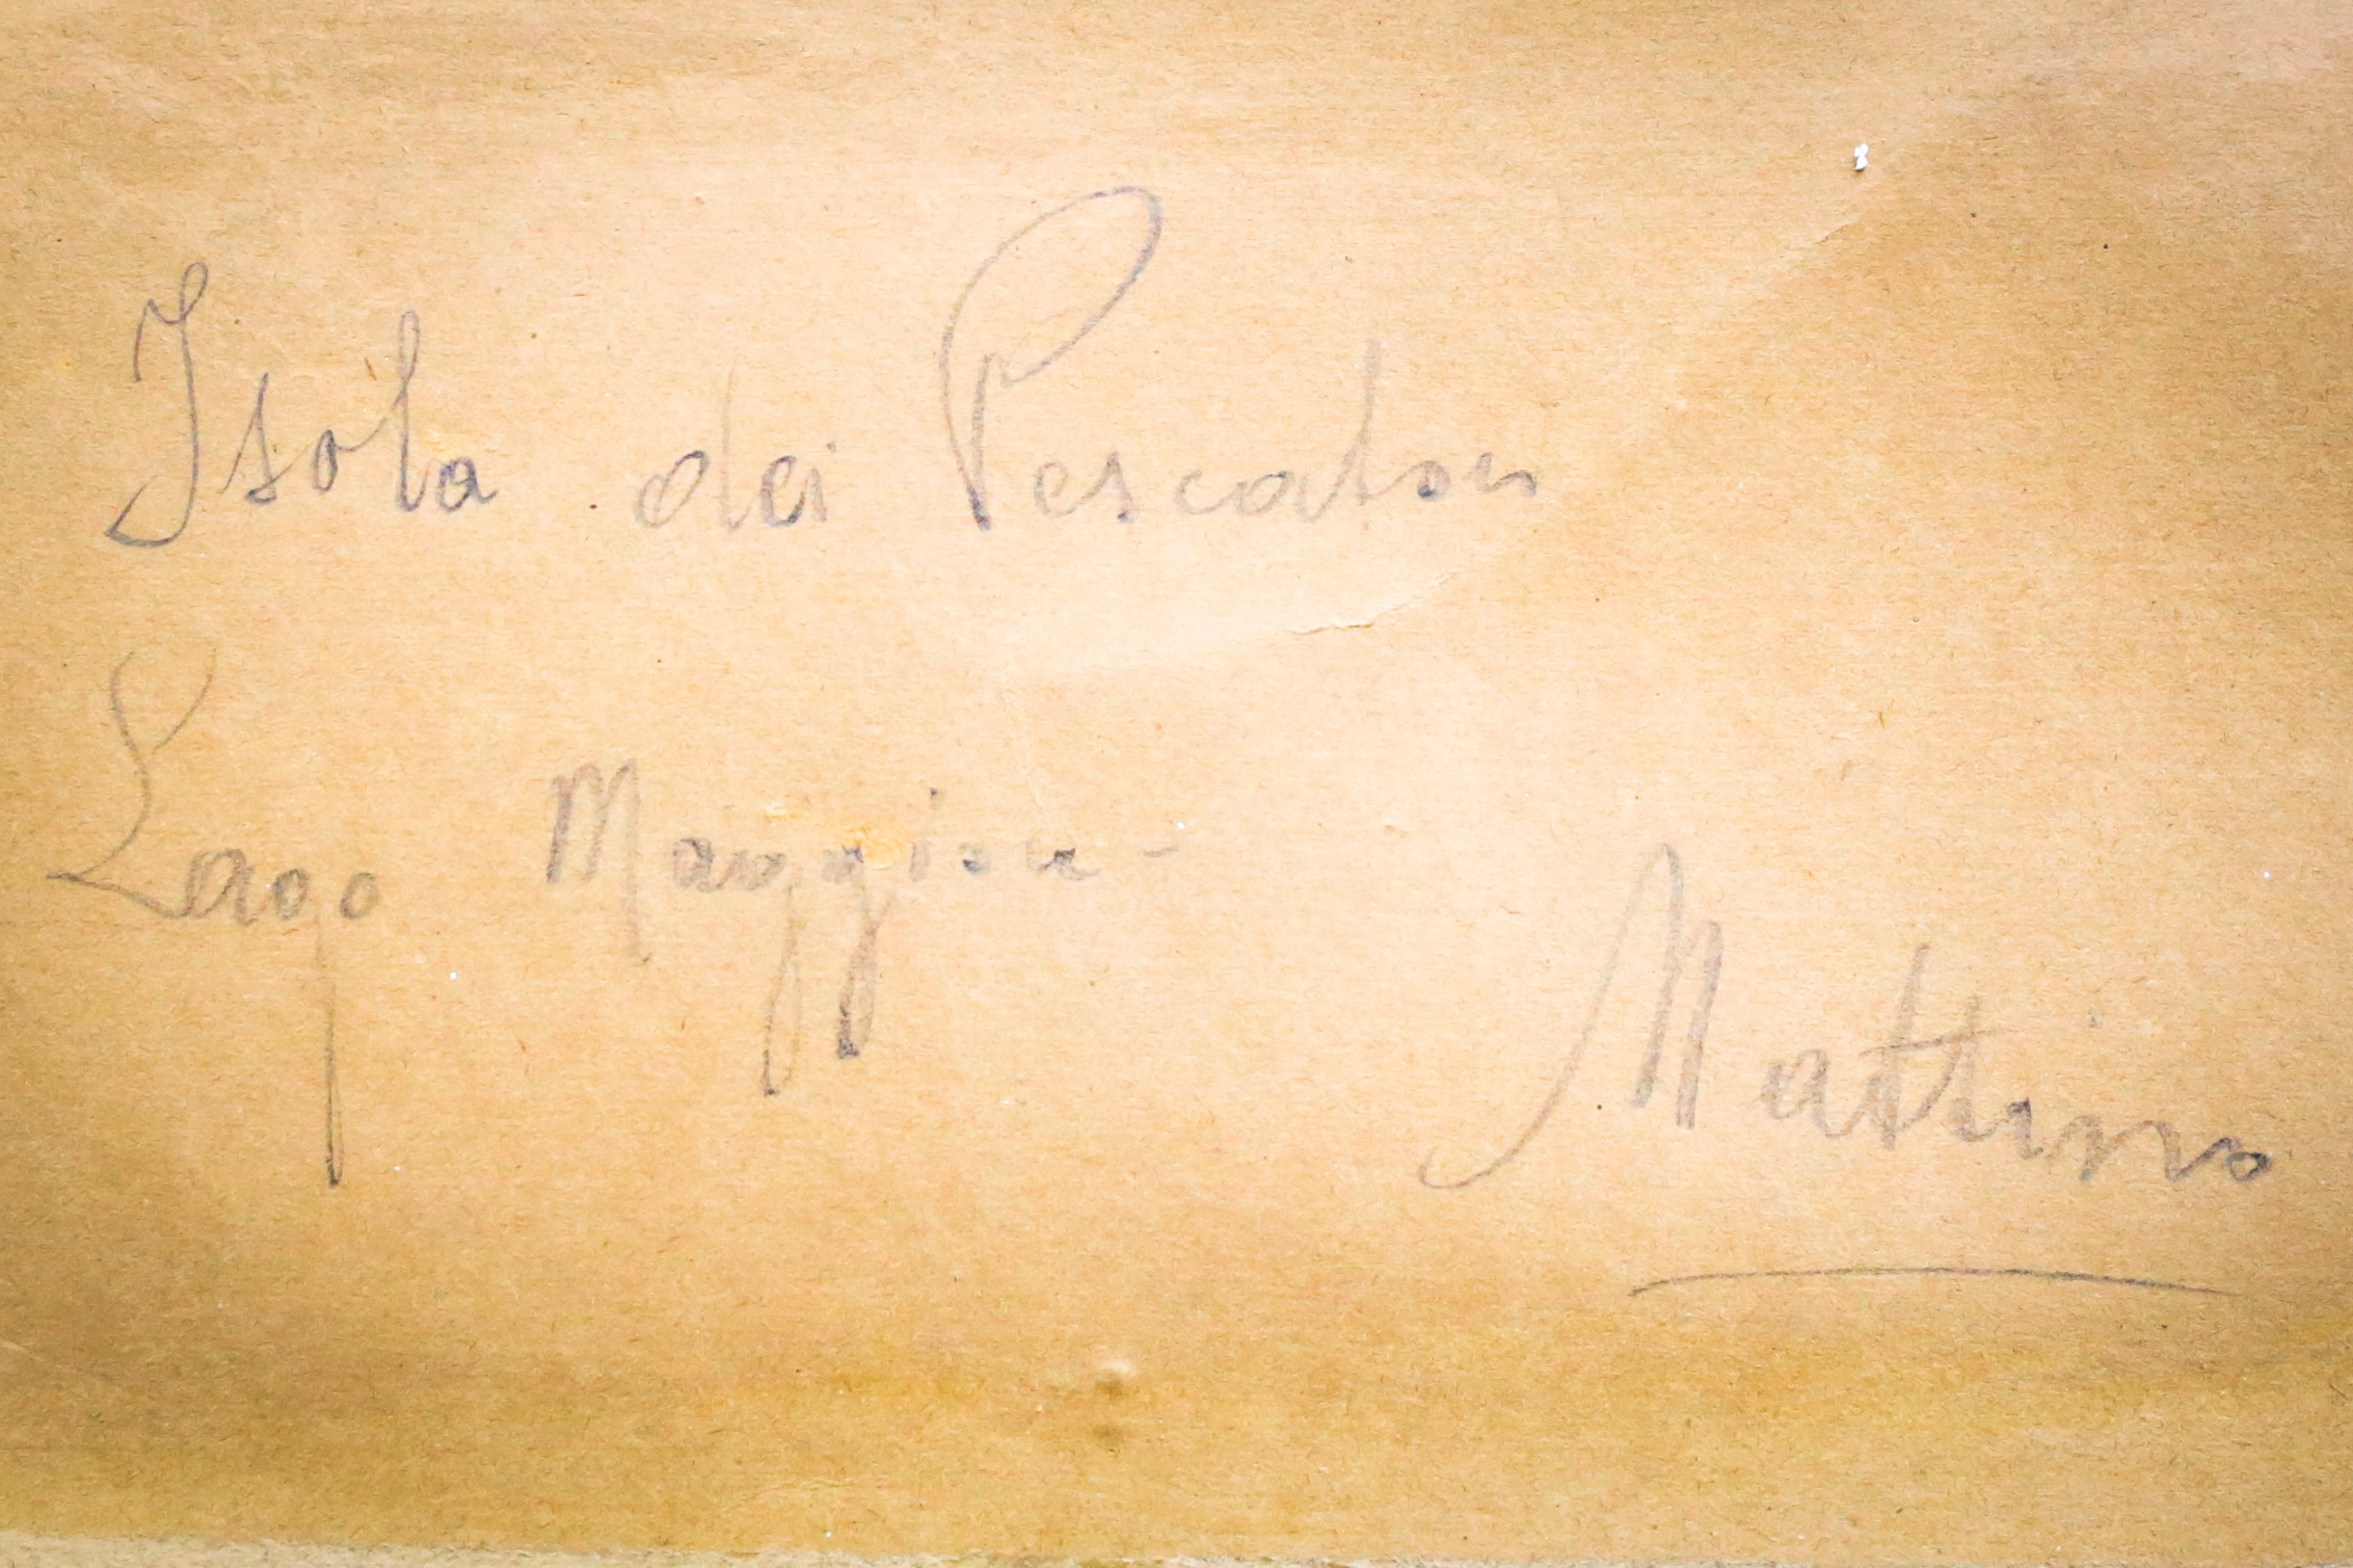 Isola dei Pescatori
Lago Maggiore -
Mattino